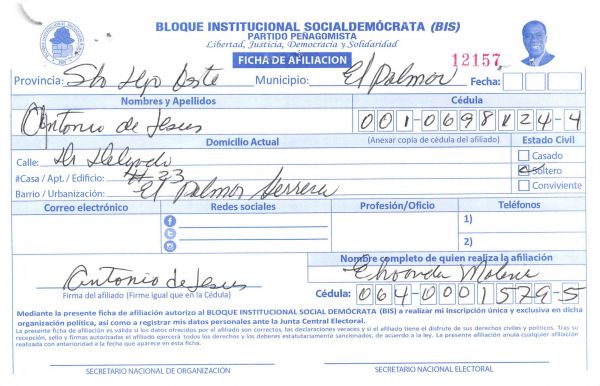 BLOQUE INSTITUCIONAL SOCIALDEMÓCRATA (BIS)
PARTIDO PEÑAGOMISTA
Libertad, Justicia, Democracia y Solidaridad
FICHA DE AFILIACION 12157
Provincia: Sto Dgo Oeste Municipio: El Palmar Fecha:
Nombres y Apellidos Cédula
Antonio de Jesus 001-0698124-4
Domicilio Actual (Anexar copia de cédula del afiliado) Estado Civil
Calle: Casado
#Casa / Apt. / Edificio: #23 Soltero
Barrio / Urbanización: El Palmar Herrera Conviviente
Correo electrónico Redes sociales Profesión/Oficio Teléfonos
1)
2)
Nombre completo de quien realiza la afiliación
Antonio de Jesus
Firma del afiliado (Firme igual que en la Cédula) Cédula: 064-0001579-5
Mediante la presente ficha de afiliación autorizo al BLOQUE INSTITUCIONAL SOCIAL DEMÓCRATA (BIS) a realizar mi inscripción única y exclusiva en dicha
organización política, así como a registrar mis datos personales ante la Junta Central Electoral.
La presente ficha de afiliación es valida si los datos ofrecidos por el afiliado son correctos, las declaraciones veraces y si el afiliado tiene el disfrute de sus derechos civiles y políticos. Tras su
recepción, sello y firmas autorizadas el afiliado ejercerá todos los derechos y los deberes estatutariamente sancionados, de acuerdo a la ley. La presente afiliación anula cualquier afiliación
realizada con anterioridad a la fecha que aparece en esta ficha.
SECRETARIO NACIONAL DE ORGANIZACIÓN SECRETARIO NACIONAL ELECTORAL